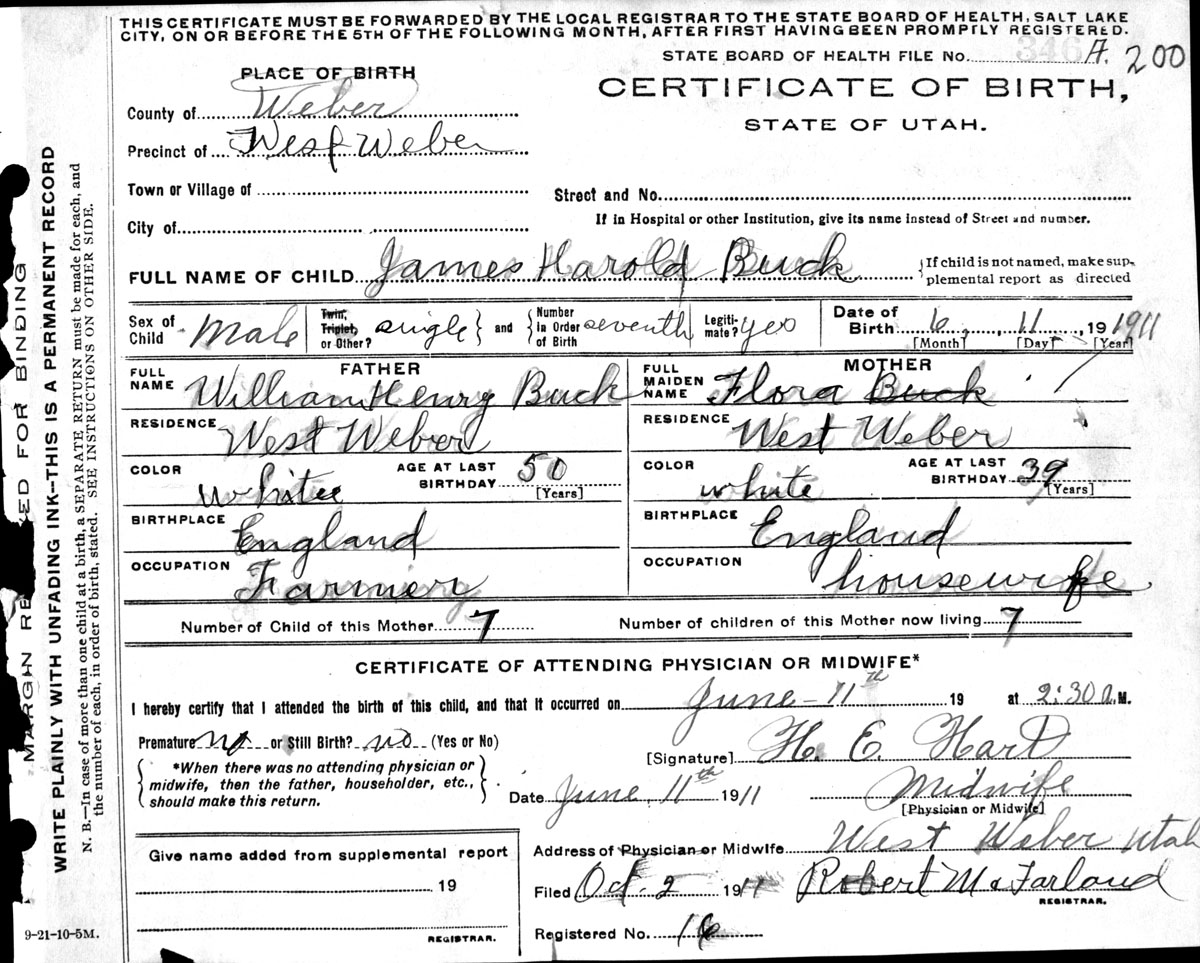 THIS CERTIFICATE MUST BE FORWARDED BY THE LOCAL REGISTRAR TO THE STATE BOARD OF HEALTH, SALT LAKE
CITY, ON OR BEFORE THE 5TH OF THE FOLLOWING MONTH, AFTER FIRST HAVING BEEN PROMPTLY REGISTERED.
STATE BOARD OF HEALTH FILE No. 346 A. 200
PLACE OF BIRTH
CERTIFICATE OF BIRTH,
STATE OF UTAH.
County of Weber
Precinct of West Weber
Town or Village of
Street and No.
If in Hospital or other Institution, give its name instead of Street and number.
City of
FULL NAME OF CHILD James Harold Buck {If child is not named, make supplemental report as directed
Sex of Child Male Twin, Triplet, or Other? single } and { Number in Order of Birth seventh Legitimate? yes Date of Birth 6, 11, 19 1911
[Month] [Day] [Year]
FATHER
FULL NAME William Henry Buck
RESIDENCE West Weber
COLOR white AGE AT LAST BIRTHDAY 50 [Years]
BIRTHPLACE England
OCCUPATION Farmer
MOTHER
FULL MAIDEN NAME Flora Buck
RESIDENCE West Weber
COLOR white AGE AT LAST BIRTHDAY 39 [Years]
BIRTHPLACE England
OCCUPATION housewife
Number of Child of this Mother 7 Number of children of this Mother now living 7
CERTIFICATE OF ATTENDING PHYSICIAN OR MIDWIFE*
I hereby certify that I attended the birth of this child, and that it occurred on June - 11th 19 at 2:30 a.M.
Premature no or Still Birth? no (Yes or No)
[Signature] H. E. Hart
{ *When there was no attending physician or
midwife, then the father, householder, etc.,
should make this return. }
Date June, 11th 1911 Midwife
[Physician or Midwife]
Give name added from supplemental report
19
REGISTRAR.
Address of Physician or Midwife West Weber Utah
Filed Oct. 2 1911 Robert McFarland
REGISTRAR.
Registered No. 16
MARGIN RE ED FOR BINDING
WRITE PLAINLY WITH UNFADING INK—THIS IS A PERMANENT RECORD
N. B.—In case of more than one child at a birth, a SEPARATE RETURN must be made for each, and
the number of each, in order of birth, stated. SEE INSTRUCTIONS ON OTHER SIDE.
9-21-10-5M.